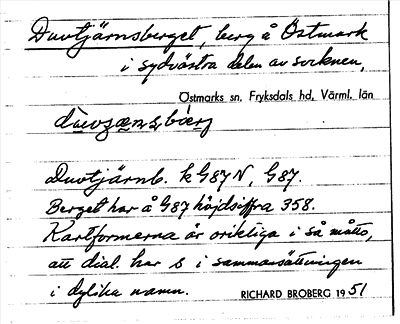 Duvtjärnsberget, berg å Östmark
i sydvästra delen av socknen,
Östmarks sn, Fryksdals hd, Värml. län
Duvtjärnb. k G87N, G87.
Berget har å G87 höjdsiffra 358.
Kartformerna är oriktiga i så måtto,
att dial. har s i sammansättningen
i dylika namn.
RICHARD BROBERG 1951